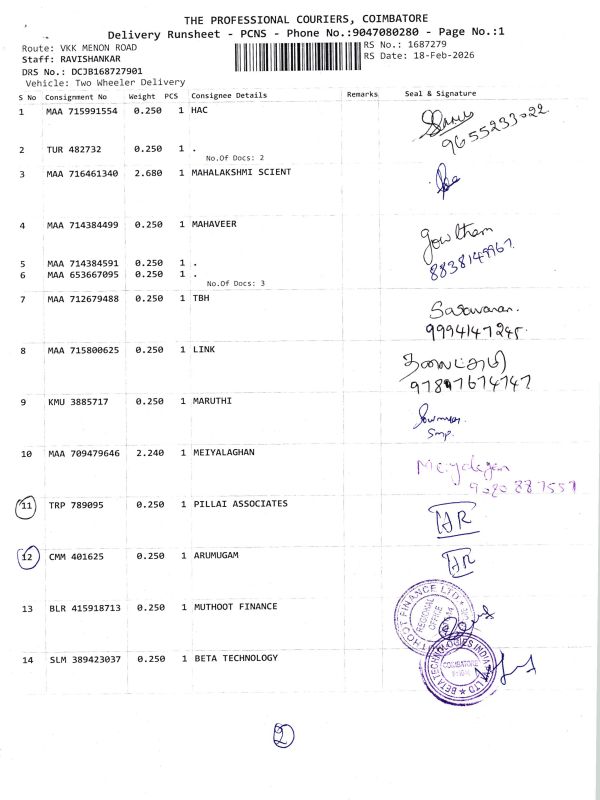 THE PROFESSIONAL COURIERS, COIMBATORE
Delivery Runsheet - PCNS - Phone No.:9047080280 - Page No.:1
Route: VKK MENON ROAD
RS No.: 1687279
Staff: RAVISHANKAR
RS Date: 18-Feb-2026
DRS No.: DCJB168727901
Vehicle: Two Wheeler Delivery
S No Consignment No Weight PCS Consignee Details Remarks Seal & Signature
1 MAA 715991554 0.250 1 HAC
9655233022
2 TUR 482732 0.250 1 .
No.Of Docs: 2
3 MAA 716461340 2.680 1 MAHALAKSHMI SCIENT
4 MAA 714384499 0.250 1 MAHAVEER
Gowtham
8838149967
5 MAA 714384591 0.250 1 .
6 MAA 653667095 0.250 1 .
No.Of Docs: 3
7 MAA 712679488 0.250 1 TBH
Saravanan.
9994147245.
8 MAA 715800625 0.250 1 LINK
9 KMU 3885717 0.250 1 MARUTHI
10 MAA 709479646 2.240 1 MEIYALAGHAN
11 TRP 789095 0.250 1 PILLAI ASSOCIATES
HR
12 CMM 401625 0.250 1 ARUMUGAM
HR
13 BLR 415918713 0.250 1 MUTHOOT FINANCE
REGIONAL
OFFICE
14 SLM 389423037 0.250 1 BETA TECHNOLOGY
BETA TECHNOLOGIES INDIA
COIMBATORE
2